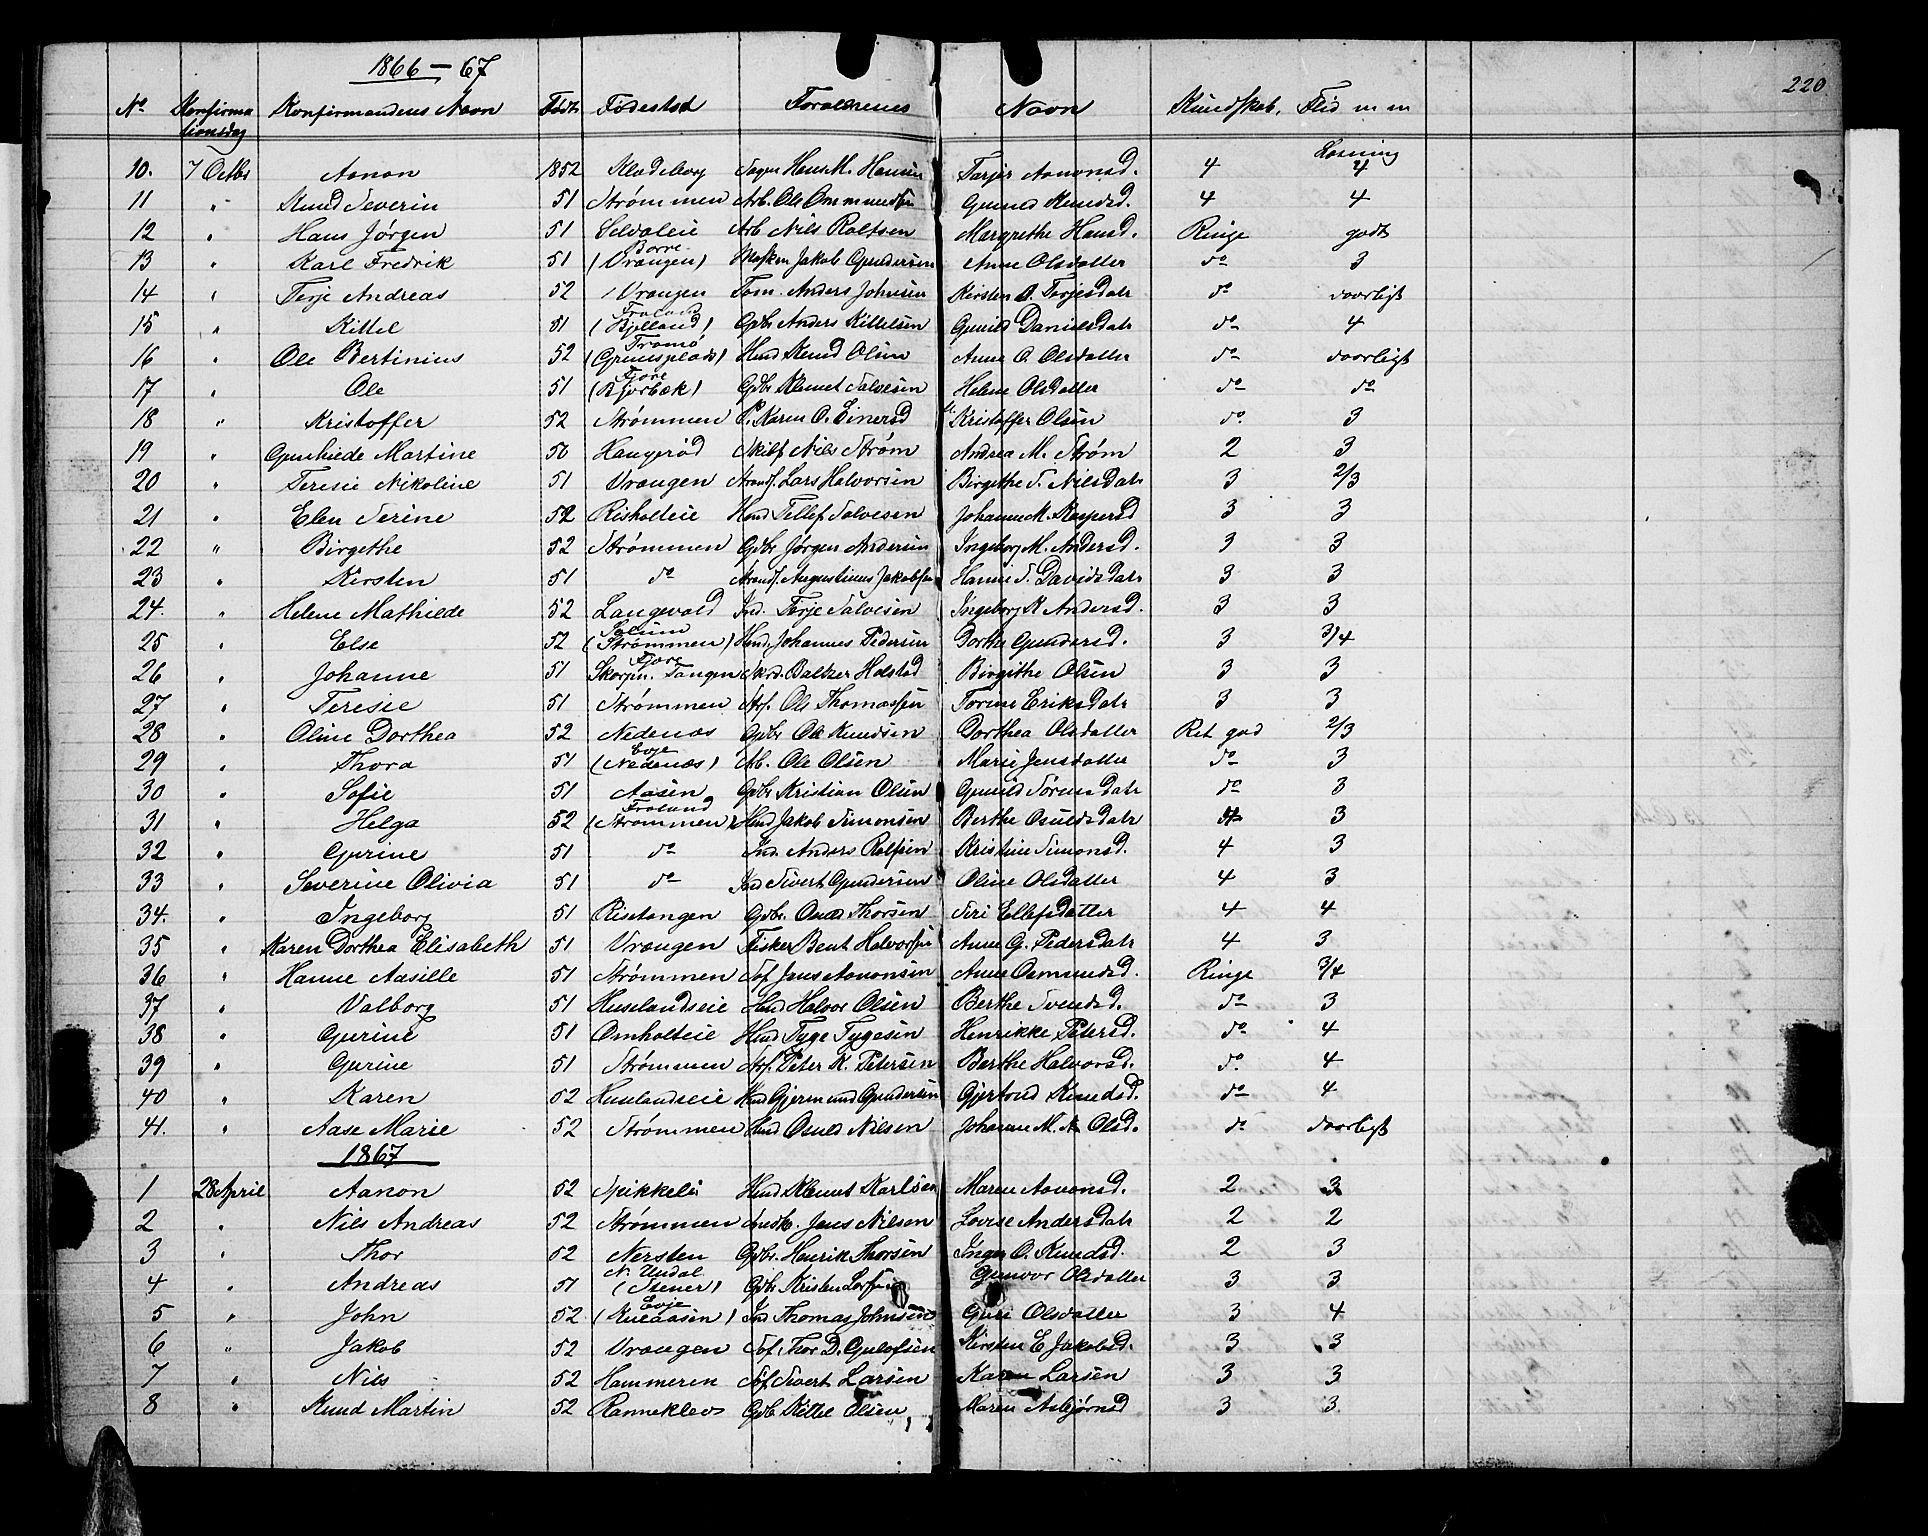 1866 - 67
220
No Konfirmationsdag Konfirmandens Navn Født Fødested Forældrenes Navn Kundskab. Flid m m
10. 7 Octbr Aanon 1852 Hans M. Hansen Aanonsd. 4 4
11 " Knud Severin 51 Strømmen Arb. Ole Ommundsen Gunild Knudsd. 4 4
12 " Hans Jørgen 51 Arb Nils Rolfsen Margrethe Hansd. Ringe godt
Borre
13 " Karl Fredrik 51 (Vrangen) Jakob Gundersen Anne Olsdatter do 3
14 " Terje Andreas 52 Vrangen Tøm. Anders Johnsen Kirsten A. Terjesdatr do daarligt
Froland
15 " Kittel 51 (Bjelland) Gdbr Anders Kittelsen Gunild Danielsdatr do 4
Tromø
16 " Ole Bertinius 52 Hmd Knud Olsen Anne O. Olsdatter do daarligt
Fjære
17 " Ole 51 (Bjorbæk) Gdbr Klemet Salvesen Helene Olsdatter do do
18 " Kristoffer 52 Strømmen P. Karen O. Einersd Kristoffer Olsen do 3
19 " Gunhilde Martine 50 Haugerød Nils Strøm Andrea M. Strøm 2 3
20 " Teresie Nikoline 51 Vrangen Lars Halvorsen Birgethe T. Nilsdatr 3 2/3
21 " Elen Serine 52 Risholteie Hmd Tellef Salvesen Johanne M. Kaspersd 3 3
22 " Birgethe 52 Strømmen Gdbr Jørgen Andersen Ingeborg M. Andersd. 3 3
23 " Kirsten 51 do Augustinus Jakobsen Hanne T. Davidsdatr 3 3
24. " Helene Mathilde 52 Langevold Ind. Terje Salvesen Ingeborg K Andersd. 3 3
Solum
25 " Else 52 (Strømmen) Hmd. Johannes Pedersen Dorthe Gundersd. 3 3/4
Fjære
26 " Johanne 51 Tangen Baltzer Holstad Birgithe Olsen 3 3
27 " Teresie 51 Strømmen Ole Thomassen Torine Eriksdatr 3 3
28 " Oline Dorthea 52 Nedenæs Gdbr Ole Knudsen Dorthea Olsdatter Ret god 2/3
Evje
29 " Thora 51 (Nedenæs) Ab. Ole Olsen Marie Jensdatter do 3
30 " Sofie 51 Aasen Gdbr Kristian Olsen Gunild Sørensdatr do 3
Froland
31 " Helga 52 (Strømmen) Hmd Jakob Simonsen Berthe Osuldsdatr 4 3
32 " Gurine 51 do Ind. Anders Rolfsen Kristine Simonsd. 4 3
33 " Severine Olivia 51 do Ind Sivert Gundersen Oline Olsdatter 4 3
34. " Ingeborg 51 Gdbr. Thorsen Siri Ellefsdatter 4 4
35 " Karen Dorthea Elisabeth 51 Vrangen Fisker Bent Halvorsen Anne G. Pedersdatr 4 3
36 " Hanne Aasille 51 Strømmen Søf Jens Aanonsen Anne Osmundsd. Ringe 3/4
37 " Valborg 51 Huslandseie Hmd Halvor Olsen Berthe Svendsd. do 3
38 " Gurine 51 Omholteie Hmd Tyge Tygesen Henrikke Petersd. do 4
39 " Gurine 51 Strømmen Peter K. Petersen Berthe Halvorsd. do 4
40 " Karen 52 Huslandseie Hmd Gjermund Gundersen Gjertrud Knudsd. do 4
41. " Aase Marie 52 Strømmen Hmd Osuld Nilsen Johanne M. N Olsd. do daarligt
1867
1 28 April Aanon 52 Hmd Klemet Karlsen Maren Aanonsd. 2 3
2 " Nils Andreas 52 Strømmen Jens Nilsen Lovise Andersdatr 2 2
3 " Thor 52 Nersten Gdbr. Henrik Thorsen Inger O. Knudsd. 2 3
N. Undal
4 " Andreas 51 Gdbr Kristen Gunvor Olsdatter 3 3
Evje
5 " John 52. Ind Thomas Johnsen Guri Olsdatter 3 4
6 " Jakob 52 Vrangen Søf. Thor D. Gulofsen Kirsten E Jakobsd. 3 3
7 " Nils 52 Hammeren Søf Sivert Larsen Karen Larsen 3 3
8 " Knud Martin 52 Rannekleo Gdb Kittel Olsen Maren Asbjørnsd 3 3